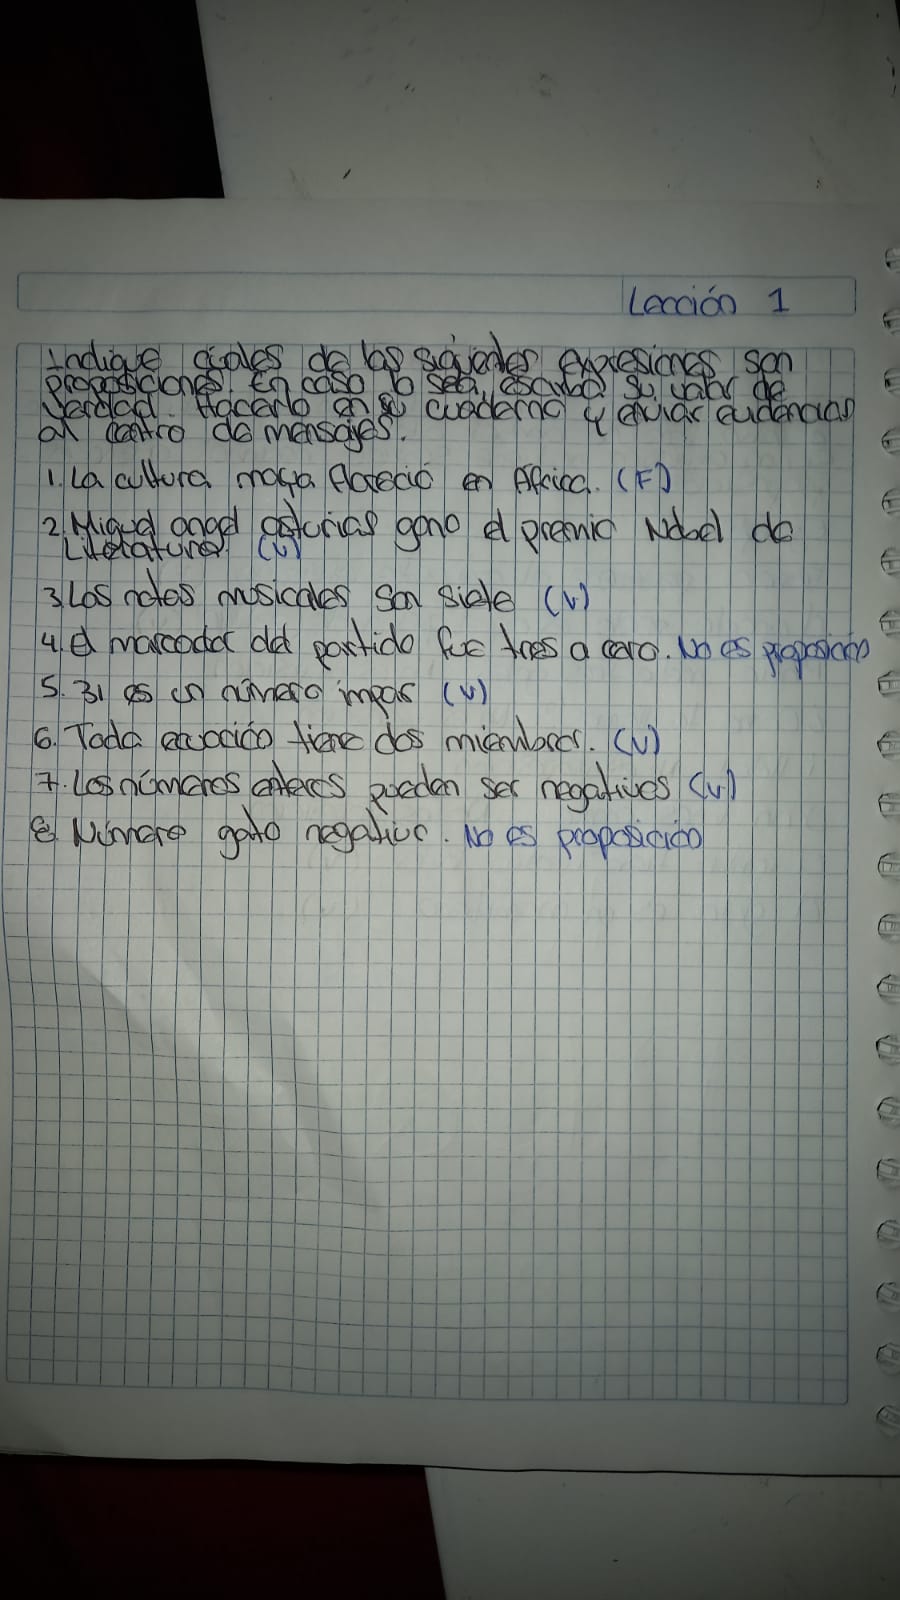 Lección 1
Indique cuales de las siguientes expresiones son
proposiciones. En caso lo sea, escriba su valor de
verdad. Hacerlo en su cuaderno y enviar evidencias
al centro de mensajes.
1. La cultura maya floreció en Africa. (F)
2. Miguel angel asturias gano el premio Nobel de
Literatura. (V)
3. Las notas musicales son siete (V)
4. El marcador del partido fue tres a cero. No es proposición
5. 31 es un número impar (V)
6. Toda ecuación tiene dos miembros. (V)
7. Los números enteros pueden ser negativos (V)
8. Número gato negativo. No es proposición